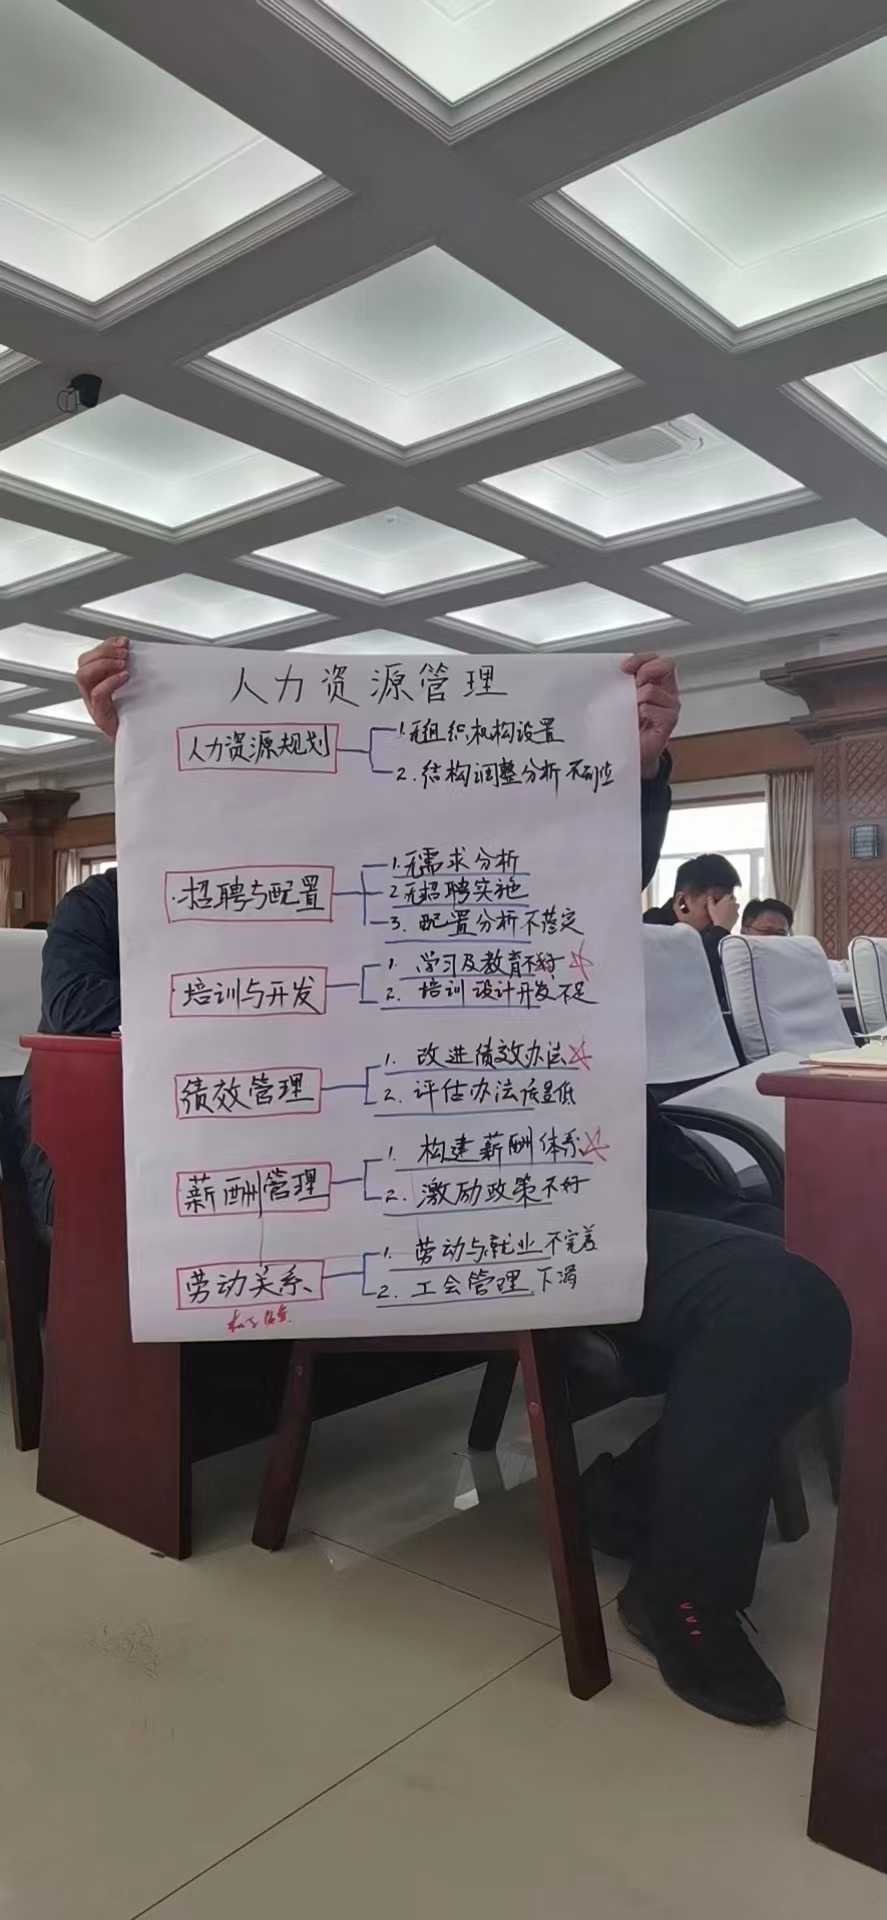 人力资源管理
人力资源规划
1.无组织机构设置
2.结构调整分析不到位
招聘与配置
1.无需求分析
2.无招聘实施
3.配置分析不落定
培训与开发
1.学习及教育不好
2.培训设计开发不足
绩效管理
1.改进绩效办法
2.评估办法质量低
薪酬管理
1.构建薪酬体系
2.激励政策不好
劳动关系
1.劳动与就业不完善
2.工会管理下滑